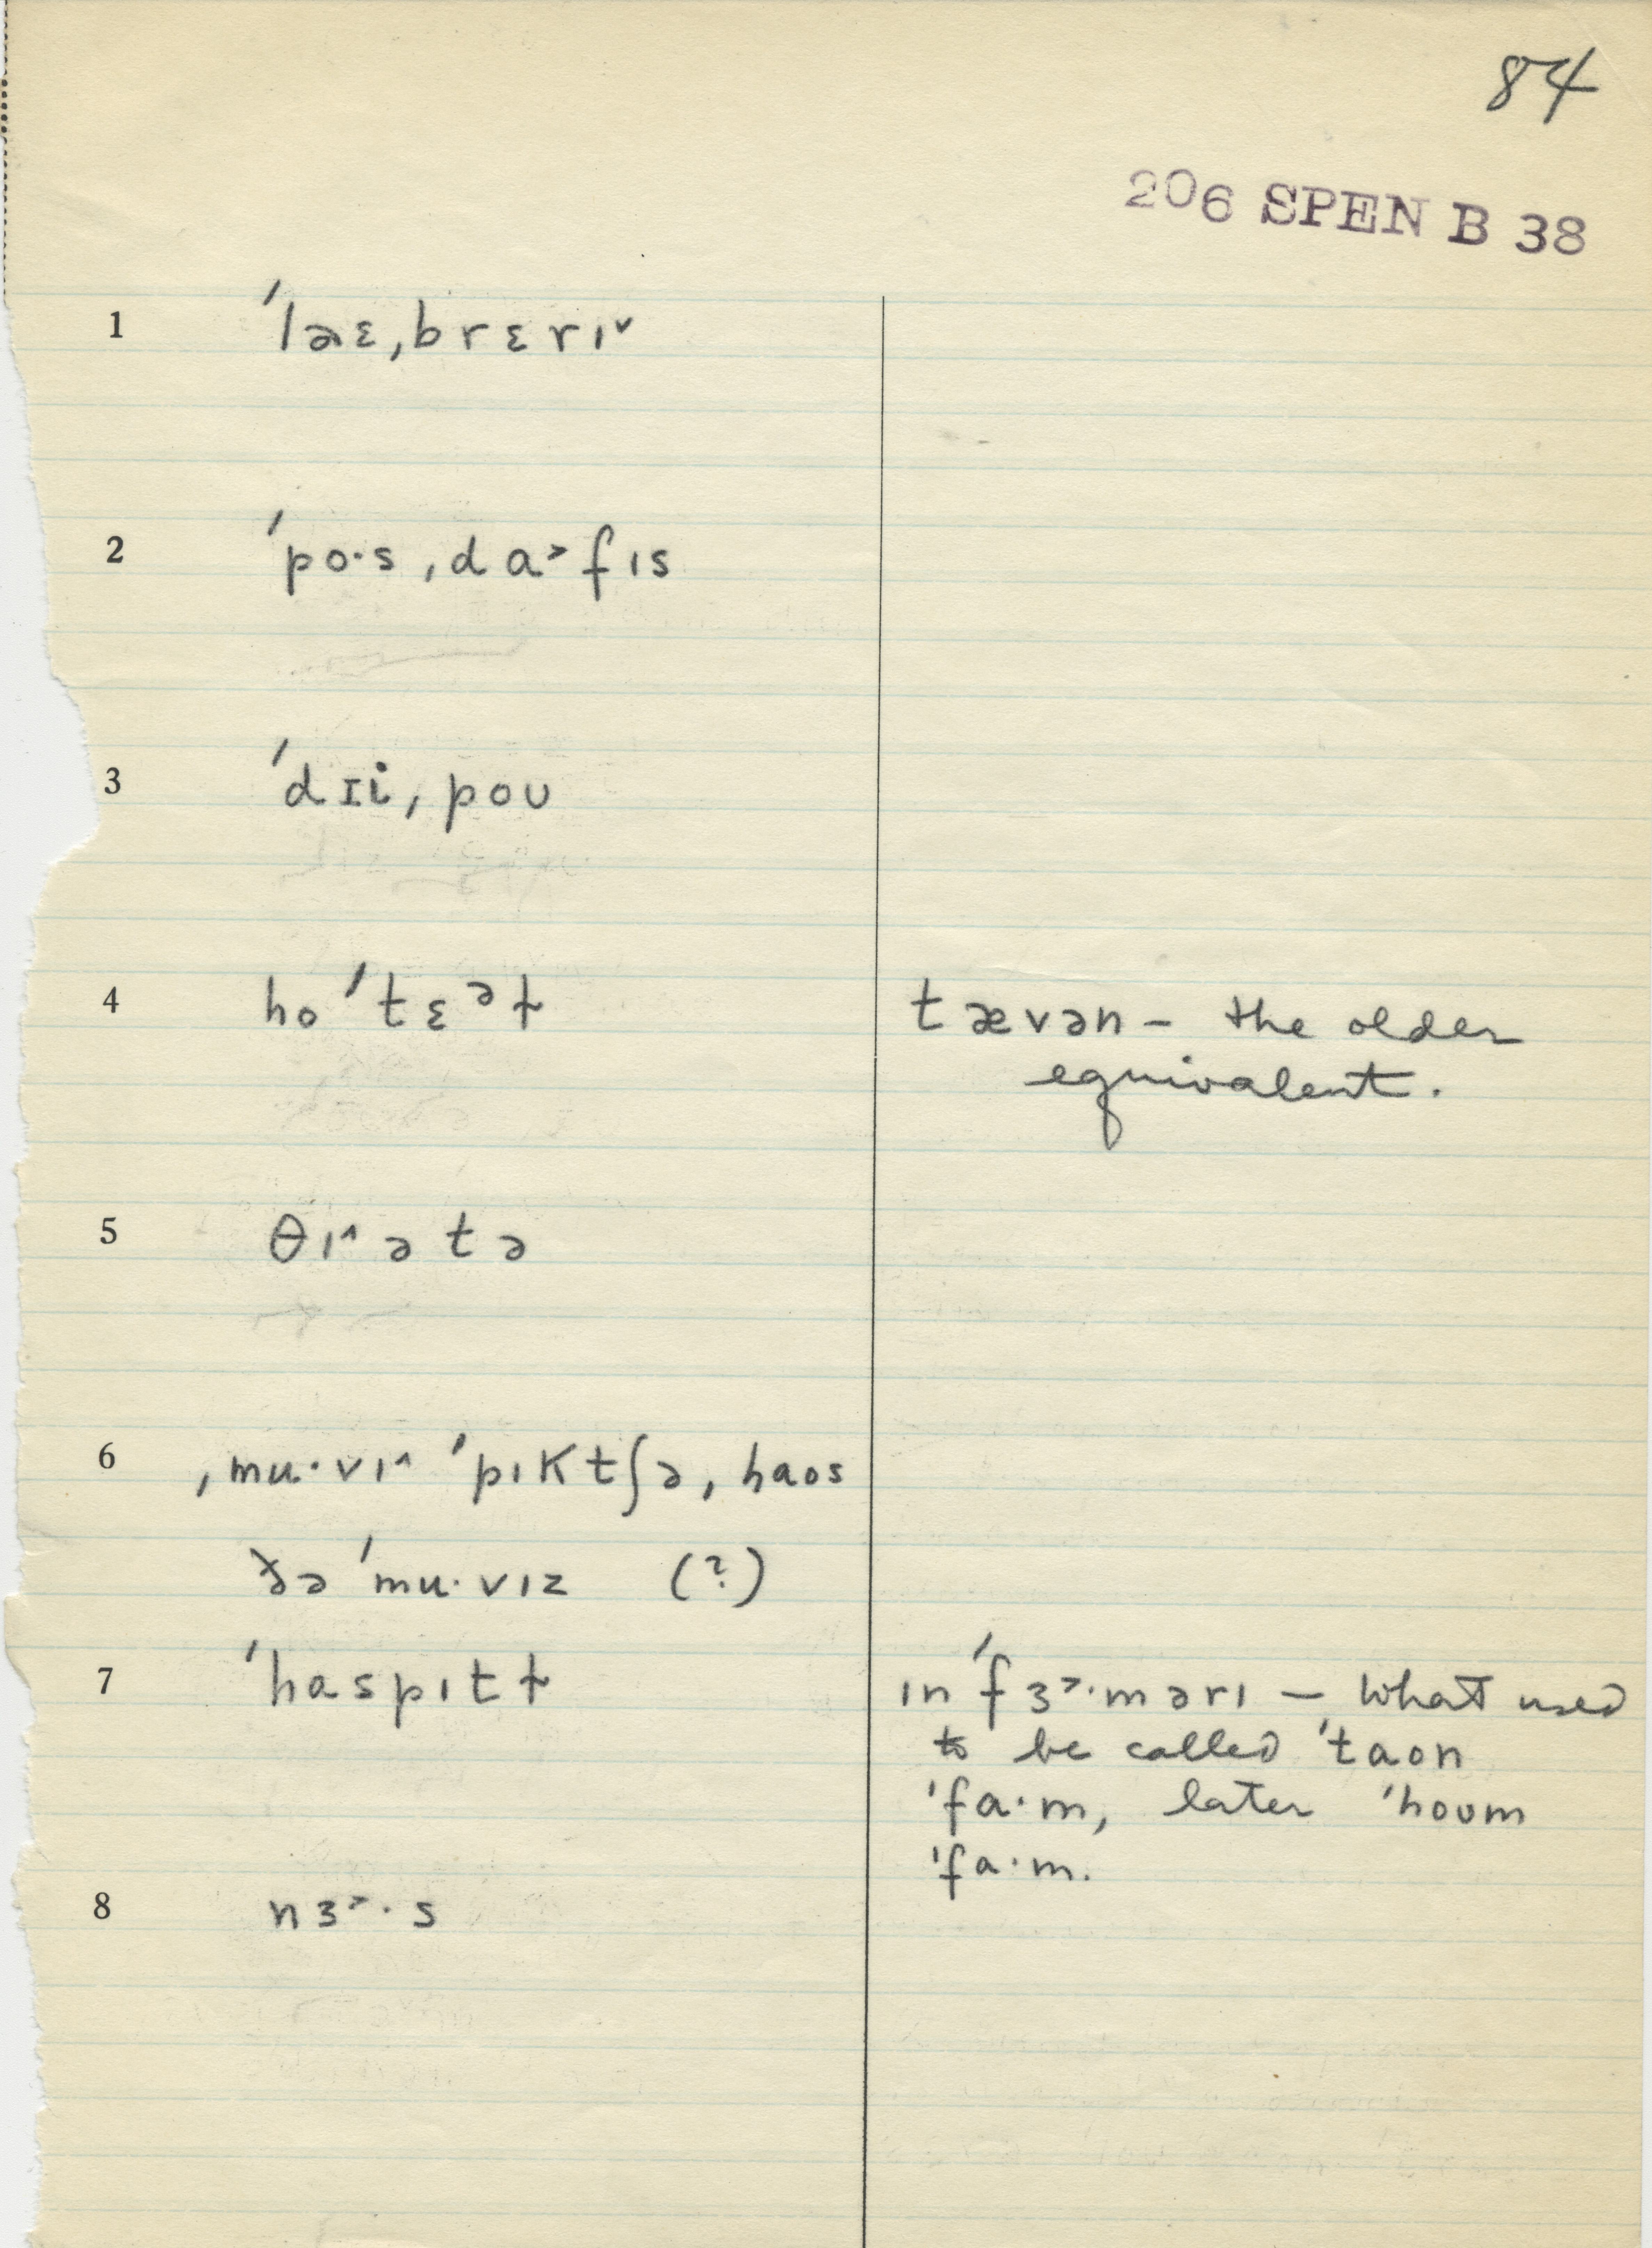 84
206 SPEN B 38
1 ˈlaɛˌbrɛrɪ˅
2 ˈpo·sˌdɑ˃fɪs
3 ˈdɪiˌpoʊ
4 hoˈtɛᵊɫ tævən – the older
equivalent.
5 θɪ˄ətə
6 ˌmu·vɪ˄ ˈpɪktʃəˌhaos
ðə ˈmu·vɪz (?)
7 ˈhaspɪtɫ ɪnˈfɜ˃·mərɪ – What used
to be called ˈtaon
ˈfa·m, later ˈhoʊm
ˈfa·m.
8 nɜ˃·s